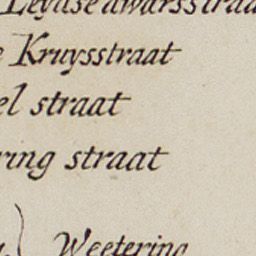 Leydse dwarsstraat
Kruysstraat
el straat
ring straat
Weetering